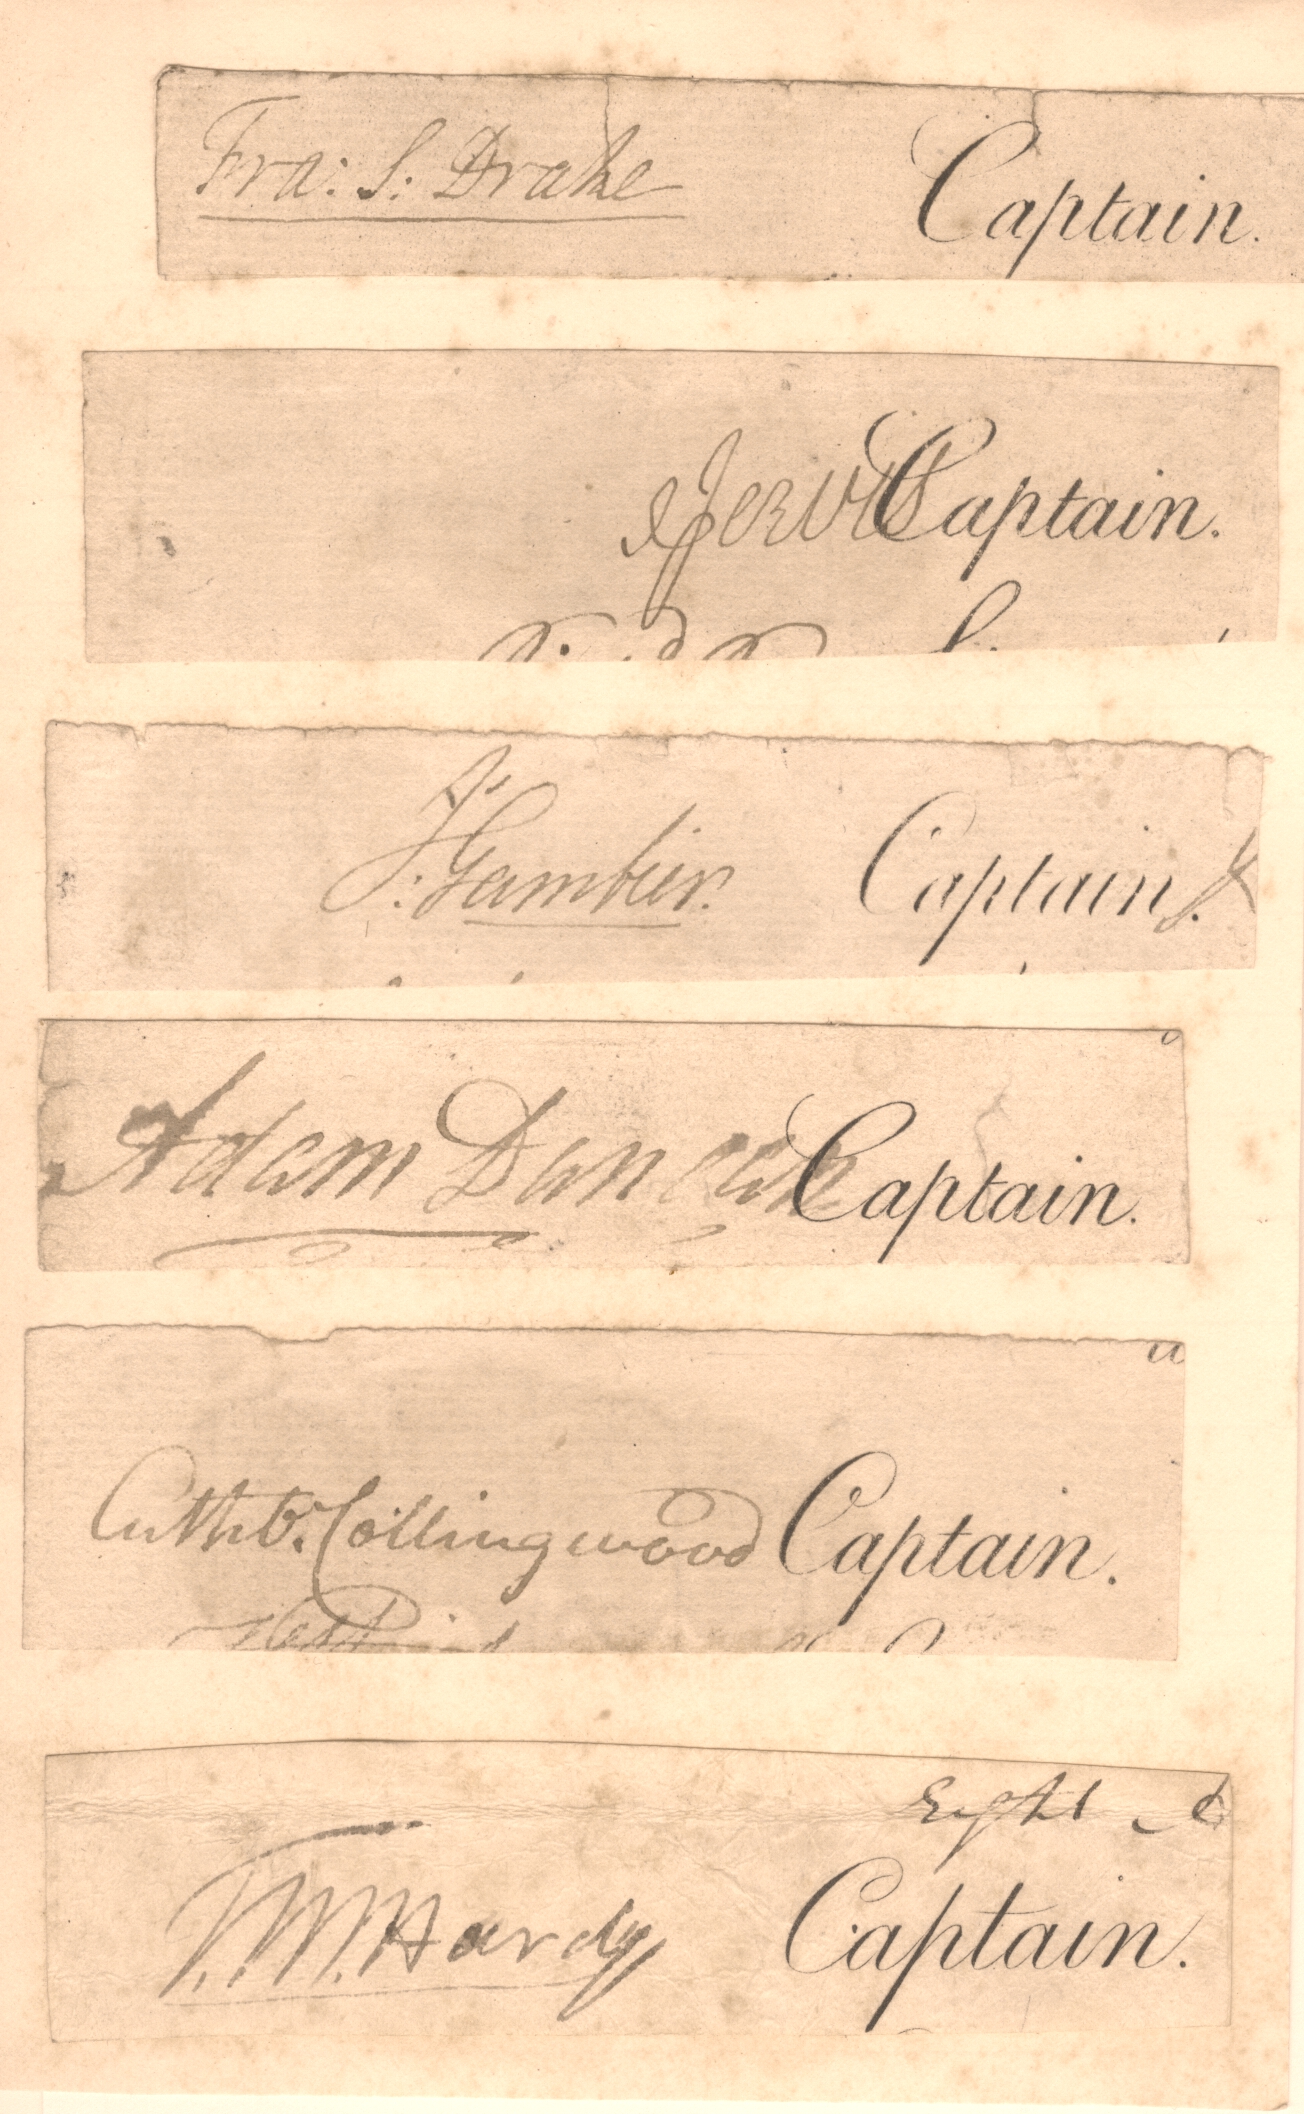 Fra: S: Drake Captain.
J Jervis Captain.
J: Gambier. Captain.
Adam Duncan Captain.
Cuthbt. Collingwood Captain.
Eight
T. M. Hardy Captain.